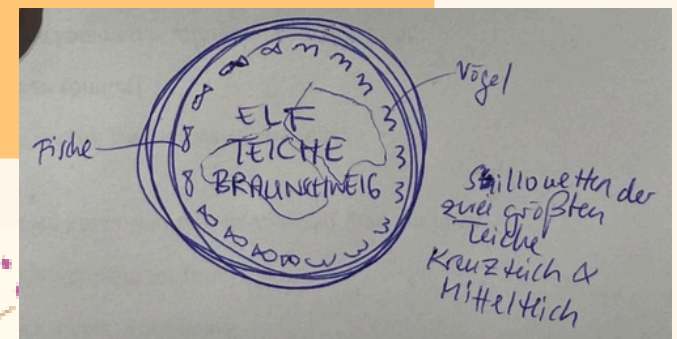 Vögel
ELF
TEICHE
BRAUNSCHWEIG
Fische
Sillouetten der
zwei größten
Teiche
Kreuzteich &
Mittelteich